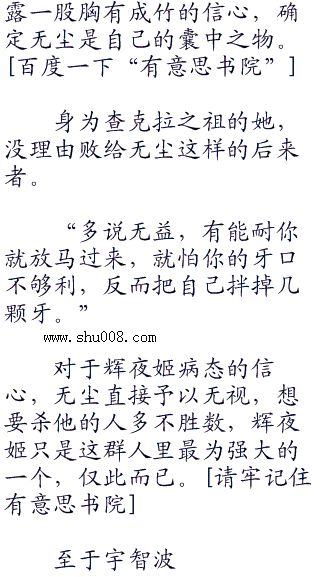 露一股胸有成竹的信心，确
定无尘是自己的囊中之物。
[百度一下“有意思书院”]
身为查克拉之祖的她，
没理由败给无尘这样的后来
者。
“多说无益，有能耐你
就放马过来，就怕你的牙口
不够利，反而把自己拌掉几
颗牙。”
www.shu008.com
对于辉夜姬病态的信
心，无尘直接予以无视，想
要杀他的人多不胜数，辉夜
姬只是这群人里最为强大的
一个，仅此而已。[请牢记住
有意思书院]
至于宇智波